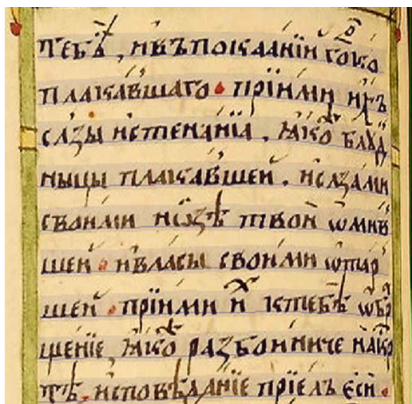 тебѣ̀, и҆въпокаѧ́нїи го́ко
плака́вшаго. прїими́ и҆́хъ
сле́зы и҆стенанїѧ. ꙗ҆́кѡ блꙋд
ницы плака́вшей. и҆слеза́ми
свои́ми но́зѣ твоѝ ѡ҆мы́в
шей. и҆власы̀ свои́ми ѡ҆тер
шей. прїими́ и҆́х ктебѣ̀ ѡ҆бр
щенїе, ꙗ҆́кѡ разбо́йниче накр
тѣ, и҆сповѣ́данїе прїе́лъ є҆сѝ.